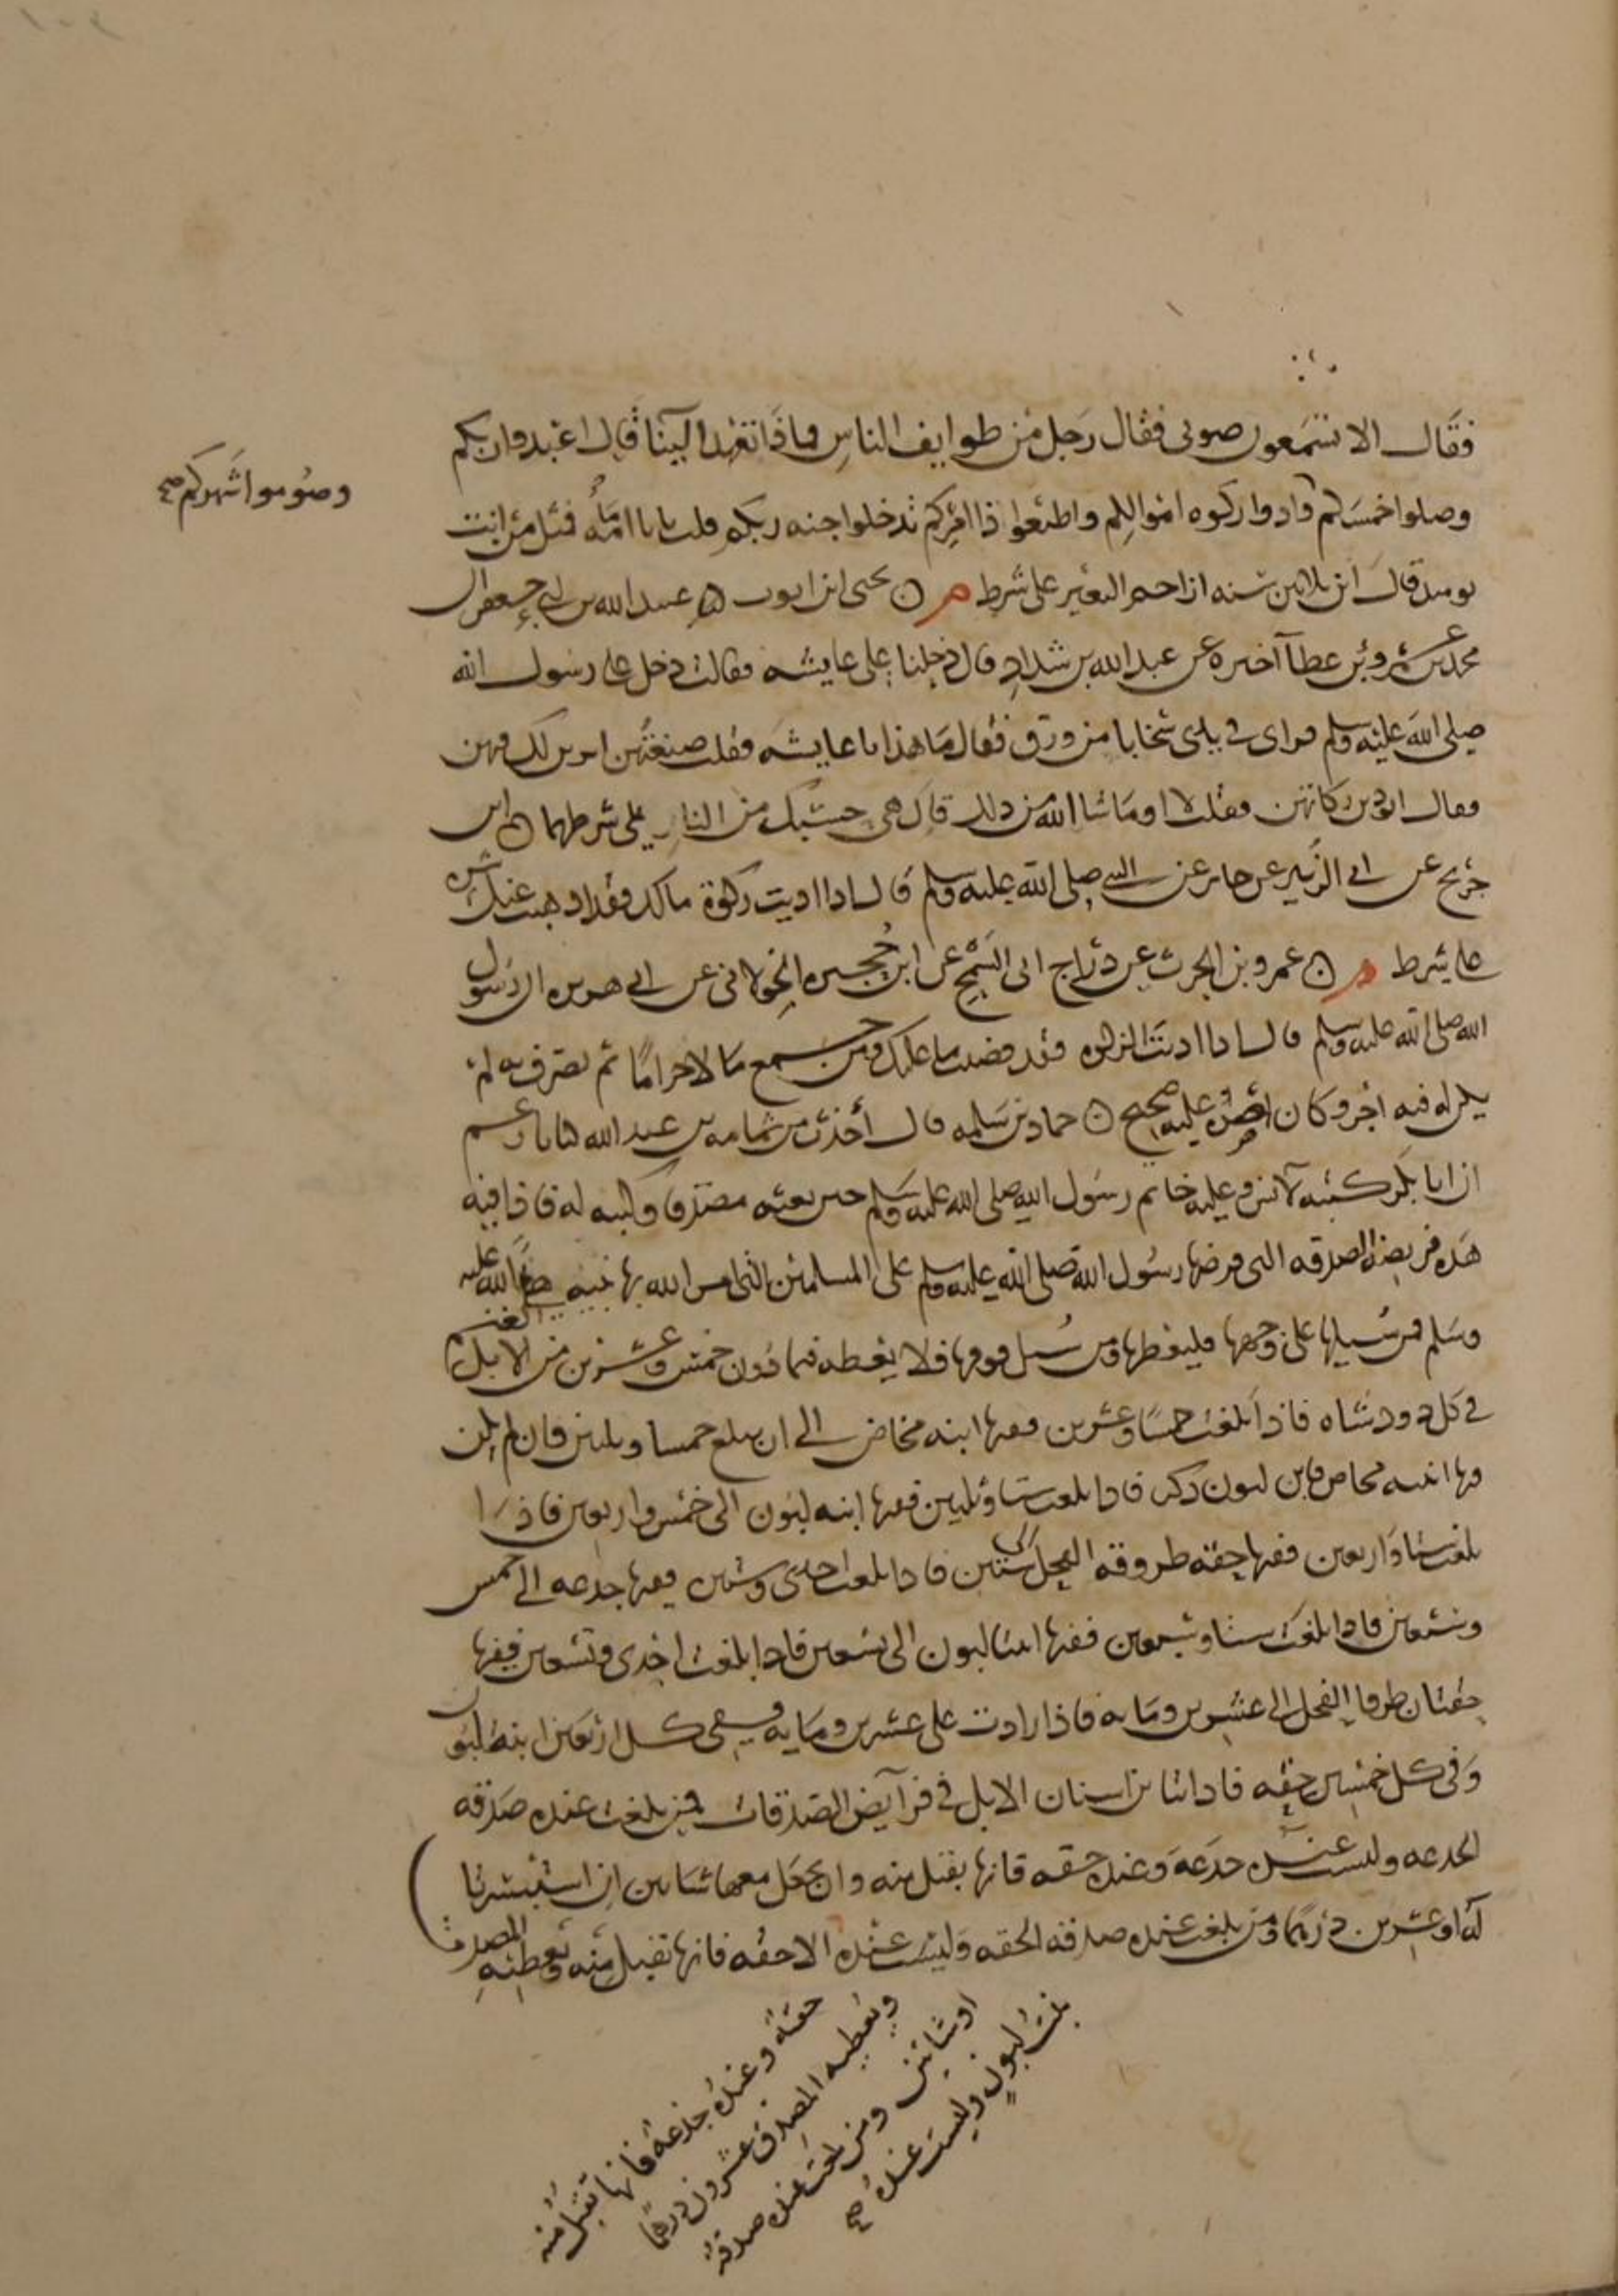 فقال الا تسمعون صوتي فقال رجل من طوايف الناس ماذا تعهد الينا قال اعبدوا ربكم
وصوموا شهركم صح
وصلوا خمسكم وادوا زكوه اموالكم واطيعوا ذا امركم تدخلوا جنه ربكم قلت يا با امامه فمثل من انت
يوميذ قال ابن ثلاثين سنه ازاحم البعير على شرط م ه يحيى بن ايوب عن عبيد الله بن ابي جعفر ان
محمد بن عمرو بن عطا آخبره عن عبد الله بن شداد قال دخلنا على عايشه فقالت دخل علي رسول الله
صلى الله عليه وسلم فراى في يدي سخابا من ورق فقال ما هذا يا عايشه فقلت صنعتهن اتزين لك فيهن
فقال اتودين زكاتهن فقلت لا او ما شا الله من ذلك قال هي حسبك من النار على شرطهما ه ابن
جريج عن ابي الزبير عن جابر عن النبي صلى الله عليه وسلم قال اذا اديت زكوة مالك فقد اذهبت عنك شره
على شرط م ه عمرو بن الحرث عن دراج ابي السمح عن ابن حجيره الخولاني عن ابي هريره ان رسول
الله صلى الله عليه وسلم قال اذا اديت الزكوه فقد قضيت ما عليك ومن جمع مالا حراما ثم تصدق به لم
يكن له فيه اجر وكان اصره عليه صحيح ه حماد بن سلمه قال أخذت من ثمامه بن عبد الله كتابا زعم
ان ابا بكر كتبه لآنس وعليه خاتم رسول الله صلى الله عليه وسلم حين بعثه مصدقا وكتبه له فاذا فيه
هذه فريضه الصدقه التي فرضها رسول الله صلى الله عليه وسلم على المسلمين التي امر الله بها نبيه صلى الله عليه
وسلم فمن سيلها على وجهها فليعطها ومن سيل فوقها فلا يعطه فيما دون خمس وعشرين من الابل الغنم
في كل ذود شاه فاذا بلغت خمسا وعشرين ففيها ابنه مخاض الى ان يبلغ خمسا وثلثين فان لم يكن
فيها ابنه مخاض فابن لبون ذكر فاذا بلغت ستا وثلثين ففيها ابنه لبون الى خمس واربعين فاذا
بلغت ستا واربعين ففيها حقه طروقه الفحل الى ستين فاذا بلغت احدى وستين ففيها جذعه الى خمس
وسبعين فاذا بلغت ستا وسبعين ففيها ابنتا لبون الى تسعين فاذا بلغت احدى وتسعين ففيها
حقتان طروقا الفحل الى عشرين ومايه فاذا زادت على عشرين ومايه ففي كل اربعين ابنه لبون
وفي كل خمسين حقه فاذا تباين اسنان الابل في فرآيض الصدقات فمن بلغت عنده صدقه
الجذعه وليست عنده جذعه وعنده حقه فانها تقبل منه وان يجعل معها شاتين ان استيسرتا
له او عشرين درهما ومن بلغت عنده صدقه الحقه وليست عنده الا حقه فانها تقبل منه ويعطيه المصدق
حقه وعنده جذعه فانها تقبل منه
ويعطيه المصدق عشرون درهما
او شاتين ومن بلغت عنده صدقه
بنت لبون وليست عنده صح